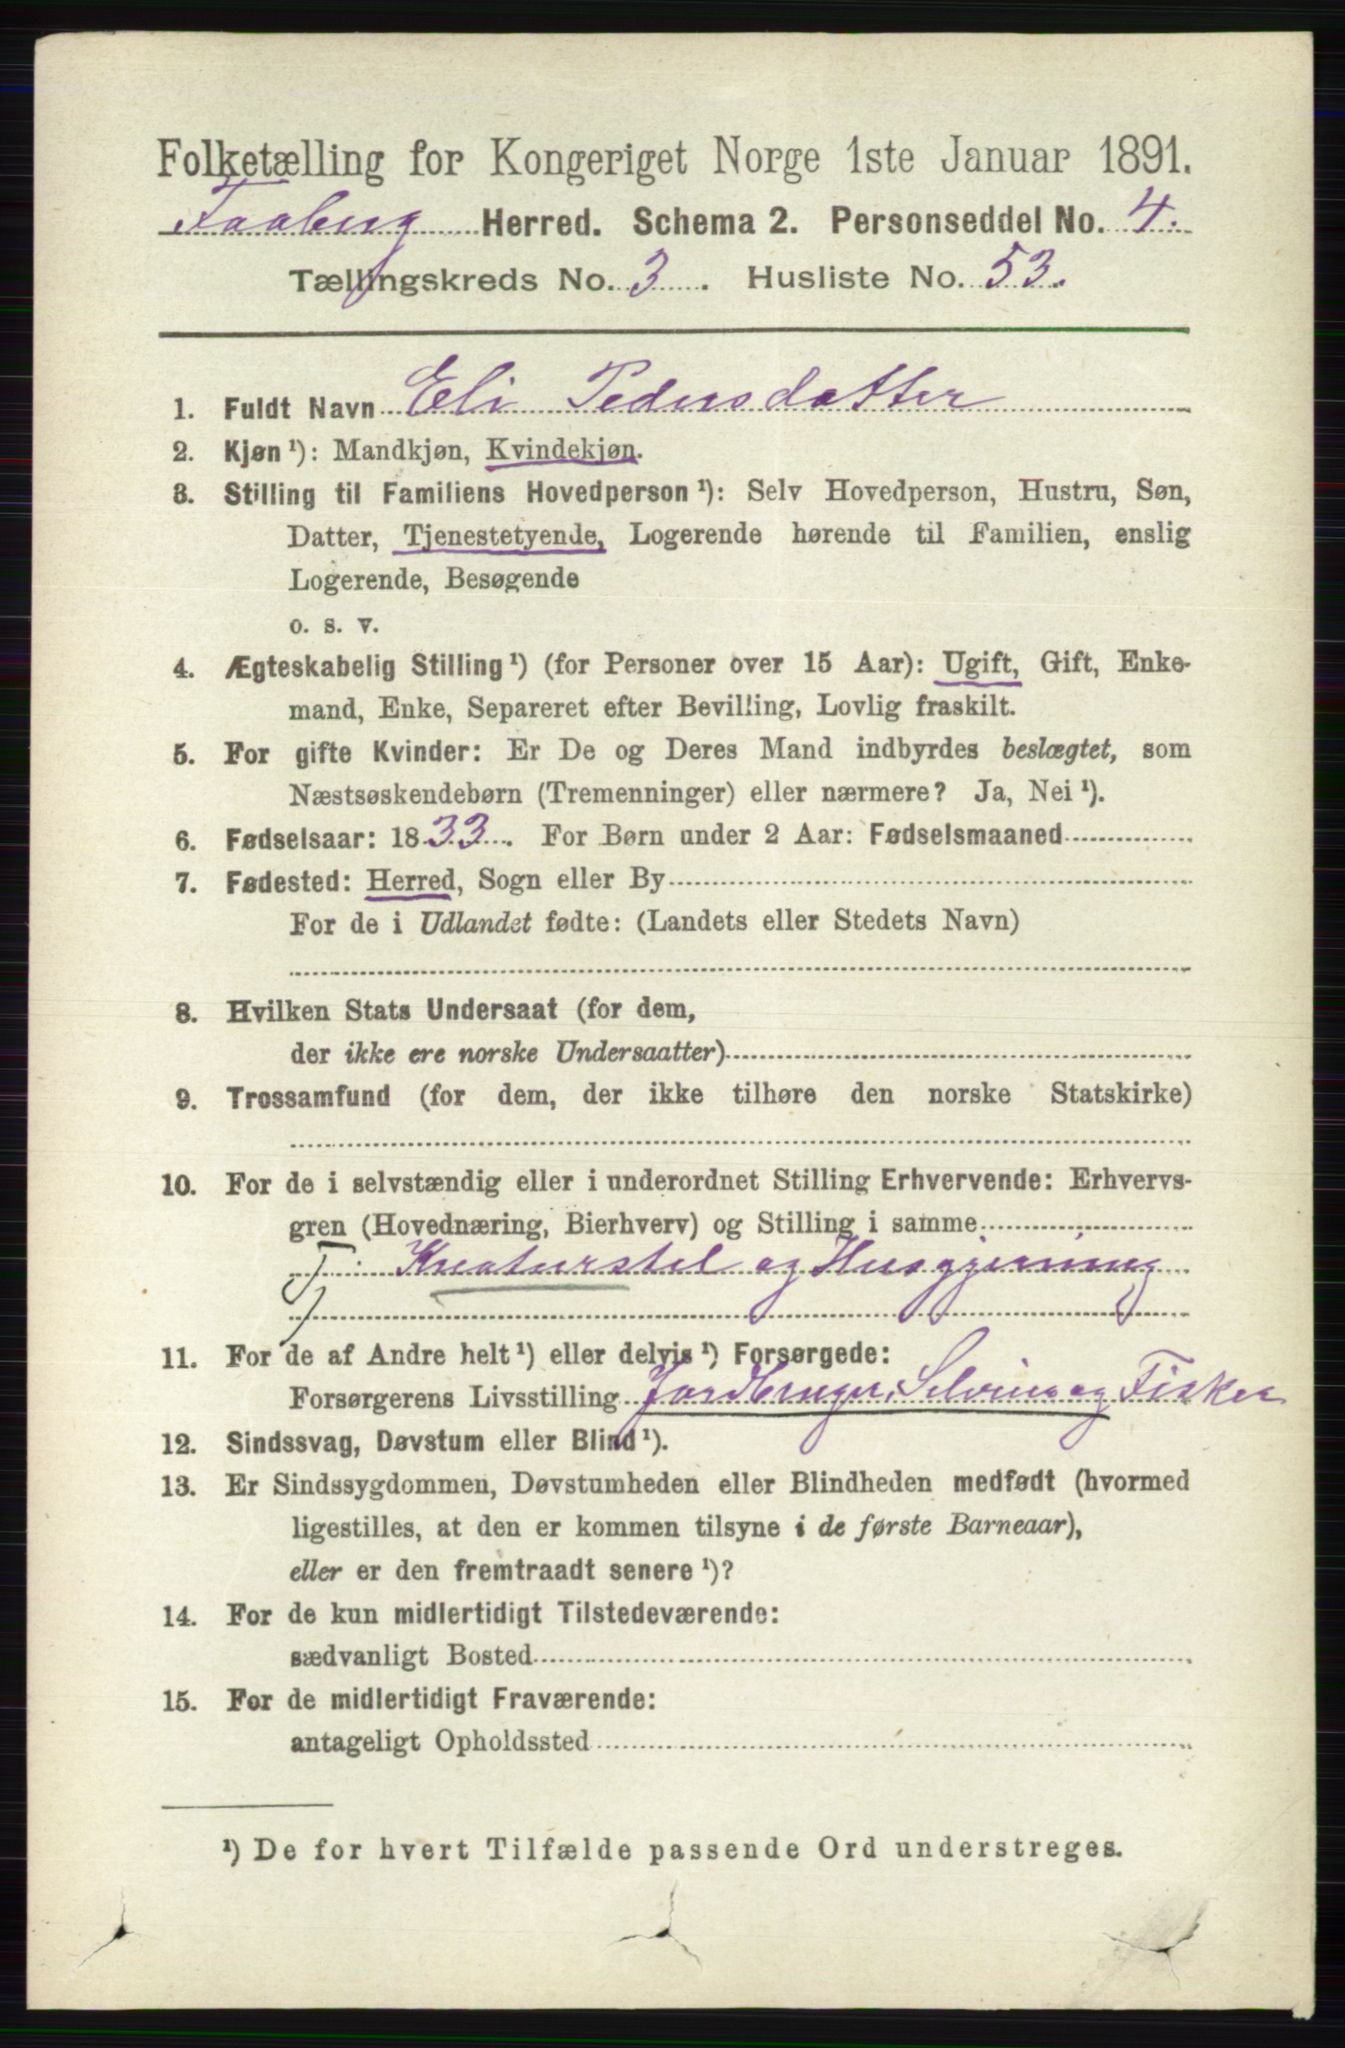 Folketælling for Kongeriget Norge 1ste Januar 1891.
Faaberg Herred. Schema 2. Personseddel No. 4.
Tællingskreds No. 3. Husliste No. 53.
1. Fuldt Navn Eli Pedersdatter
2. Kjøn ¹): Mandkjøn, Kvindekjøn.
3. Stilling til Familiens Hovedperson ¹): Selv Hovedperson, Hustru, Søn,
Datter, Tjenestetyende, Logerende hørende til Familien, enslig
Logerende, Besøgende
o. s. v.
4. Ægteskabelig Stilling ¹) (for Personer over 15 Aar): Ugift, Gift, Enke-
mand, Enke, Separeret efter Bevilling, Lovlig fraskilt.
5. For gifte Kvinder: Er De og Deres Mand indbyrdes beslægtet, som
Næstsøskendebørn (Tremenninger) eller nærmere? Ja, Nei ¹).
6. Fødselsaar: 1833. For Børn under 2 Aar: Fødselsmaaned
7. Fødested: Herred, Sogn eller By
For de i Udlandet fødte: (Landets eller Stedets Navn)
8. Hvilken Stats Undersaat (for dem,
der ikke ere norske Undersaatter)
9. Trossamfund (for dem, der ikke tilhøre den norske Statskirke)
10. For de i selvstændig eller i underordnet Stilling Erhvervende: Erhvervs-
gren (Hovednæring, Bierhverv) og Stilling i samme
T: Kreaturstel og Husgjerning
11. For de af Andre helt ¹) eller delvis ¹) Forsørgede:
Forsørgerens Livsstilling Jordbruger, Selveier og Fisker
12. Sindssvag, Døvstum eller Blind ¹).
13. Er Sindssygdommen, Døvstumheden eller Blindheden medfødt (hvormed
ligestilles, at den er kommen tilsyne i de første Barneaar),
eller er den fremtraadt senere ¹)?
14. For de kun midlertidigt Tilstedeværende:
sædvanligt Bosted
15. For de midlertidigt Fraværende:
antageligt Opholdssted
¹) De for hvert Tilfælde passende Ord understreges.